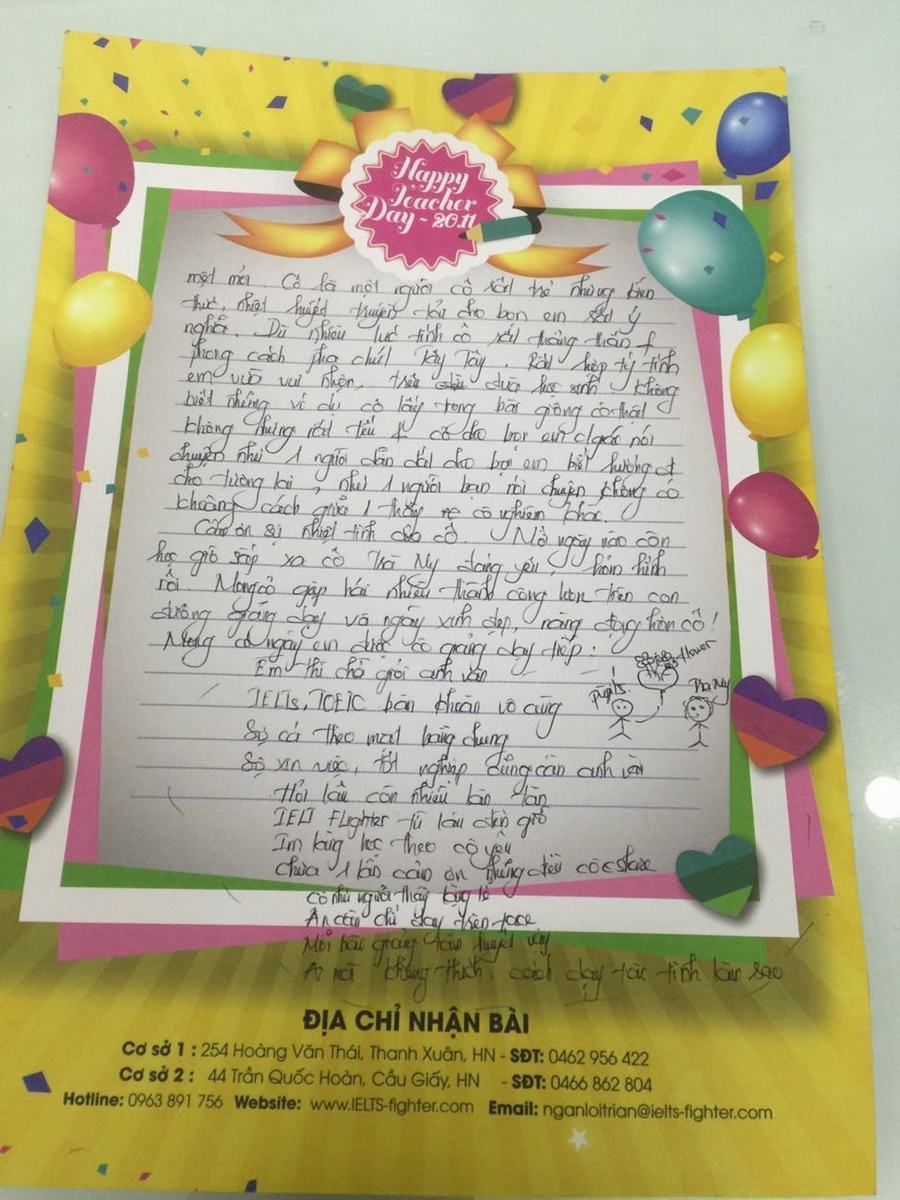 Happy
Teacher
Day - 20.11
mệt mỏi. Cô là một người cô rất trẻ nhưng kiến
thức, nhiệt huyết truyền tải cho bọn em rất ý
nghĩa. Dù nhiều lúc tính cô rất thẳng thắn +
phong cách pha chút Tây Tây. Rất hợp tý tình
em vừa vui nhộn, trêu đùa được học sinh. Không
biết những ví dụ cô lấy trong bài giảng có thật
không nhưng rất tếu & cô cho bọn em cảm giác nói
chuyện như 1 người dẫn dắt cho bọn em biết hướng đi
cho tương lai, như 1 người bạn nói chuyện không có
khoảng cách giữa 1 thầy mẹ cô nghiêm khắc.
Cảm ơn sự nhiệt tình của cô. Mà ngày nào còn
học giờ sắp xa cô Trà My đáng yêu, hóm hỉnh
rồi. Mong cô gặp hái nhiều thành công hơn trên con
đường giảng dạy và ngày xinh đẹp, năng động hơn cô!
Mong có ngày em được cô giảng dạy tiếp:
flower
Pupils
Trà My
Em thi chả giỏi anh văn
IELTs, TOEIC băn khoăn vô cùng
Sợ cá theo mặt bằng chung
Sợ xin việc, tốt nghiệp dùng cần anh văn
Hỏi lâu còn nhiều lần lần
IELT Flighter từ lâu đến giờ
Im lặng học theo cô yêu
Chưa 1 lần cảm ơn những điều cô share
Cô như người thầy lặng lẽ
Ân cần chỉ dạy trên face
Mỗi bài giảng tâm huyết vậy
Ai mà không thích, cách dạy tài tình làm sao
ĐỊA CHỈ NHẬN BÀI
Cơ sở 1 : 254 Hoàng Văn Thái, Thanh Xuân, HN - SĐT: 0462 956 422
Cơ sở 2 : 44 Trần Quốc Hoàn, Cầu Giấy, HN - SĐT: 0466 862 804
Hotline: 0963 891 756 Website: www.IELTS-fighter.com Email: nganloitrian@ielts-fighter.com